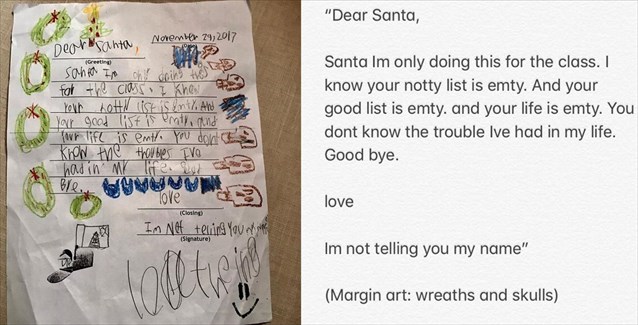 Dear Santa,
November 29, 2017
(Greeting)
Santa Im only doing this
for the class. I know
Your notty list is emty. And
Your good list is emty. and
Your life is emty. You dont
know the troubles Ive
had in my life. Good
Bye.
love
(Closing)
Im Not telling you my name
(Signature)
“Dear Santa,
Santa Im only doing this for the class. I
know your notty list is emty. And your
good list is emty. and your life is emty. You
dont know the trouble Ive had in my life.
Good bye.
love
Im not telling you my name”
(Margin art: wreaths and skulls)